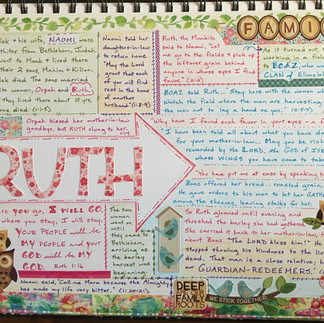 FAMI
lek & his wife, NAOMI, were
from Bethlehem, Judah
went to Moab & lived there
their 2 sons, Mahlon & Kilion.
lek died. The sons married
women, Orpah and Ruth.
they lived there about 10 yrs.
(1:1-5)
Naomi told her
daughters-in-law
to return home.
"May the Lord
grant that each
of you will find
rest in the home
of another
(1:8-9)
Ruth the Moabite
to Naomi, "Let
me go to the fields & pick up
the leftover grain behind
anyone in whose eyes I find
favor." (2:2)
as it turned out,
working in a field
to BOAZ,
CLAN of Elimelek
BOAZ told Ruth... Stay here with the women
Watch the field where the men are harvesting
the men not to lay a hand on you."
Orpah kissed her mother-in-law
goodbye, but RUTH clung to her.
RUTH
"Why have I found such favor in your eyes
I have been told all about what you have done
for your mother-in-law... May you be richly
rewarded by the LORD, the GOD of ISRAEL
whose WINGS you have come to take
"You have put me at ease by speaking
Boaz offered her bread... roasted grain
He gave orders to his men to let her GATHER
among the sheaves, leaving stalks for her.
Where you go, I WILL GO,
where you stay, I will stay.
YOUR PEOPLE will be
MY PEOPLE and your
GOD will be MY
GOD. Ruth 1:16
The two
women
went
until they
came to
Bethlehem,
arriving as
the barley
harvest was
beginning.
So Ruth gleaned until evening and
threshed the barley she had gathered.
She carried it back to her mother-in-law
about Boaz. "The LORD bless him!" He
stopped showing his kindness to the living
dead. That man is a close relative;
our GUARDIAN-REDEEMERS."
Naomi said, Call me Mara because the Almighty
has made my life very bitter." (1:20-21)
DEEP
FAMILY
ROOTS
WE STICK TOGETHER